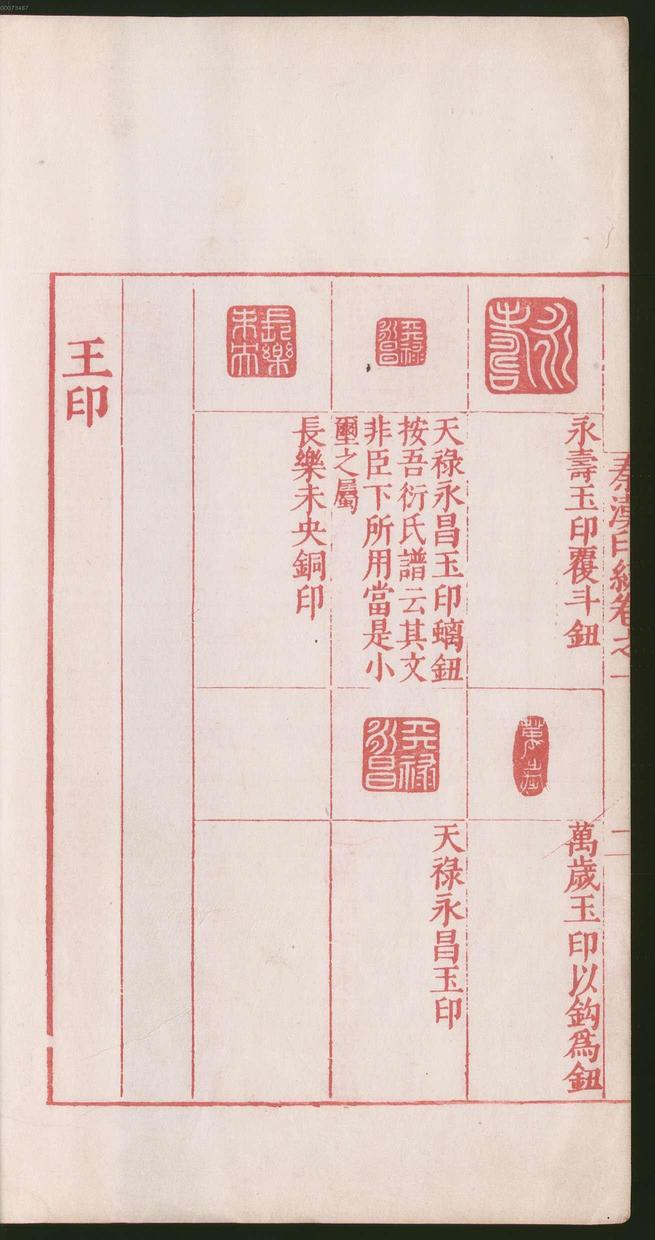 00073467
秦漢印統卷之一
二
永壽
永壽玉印覆斗鈕
萬歲
萬歲玉印以鈎爲鈕
天祿永昌
天祿永昌玉印螭鈕
按吾衍氏譜云其文
非臣下所用當是小
璽之屬
天祿永昌
天祿永昌玉印
長樂未央
長樂未央銅印
王印